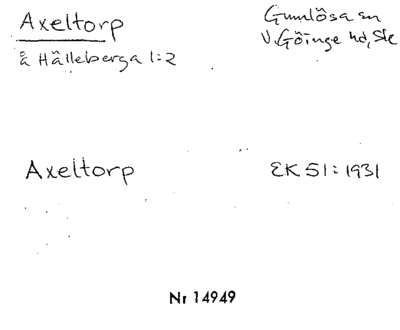 Axeltorp
å Hälleberga 1:2
Gumlösa sn
V. Göinge hd, Sk
Axeltorp
EK 51:1931
Nr 14949